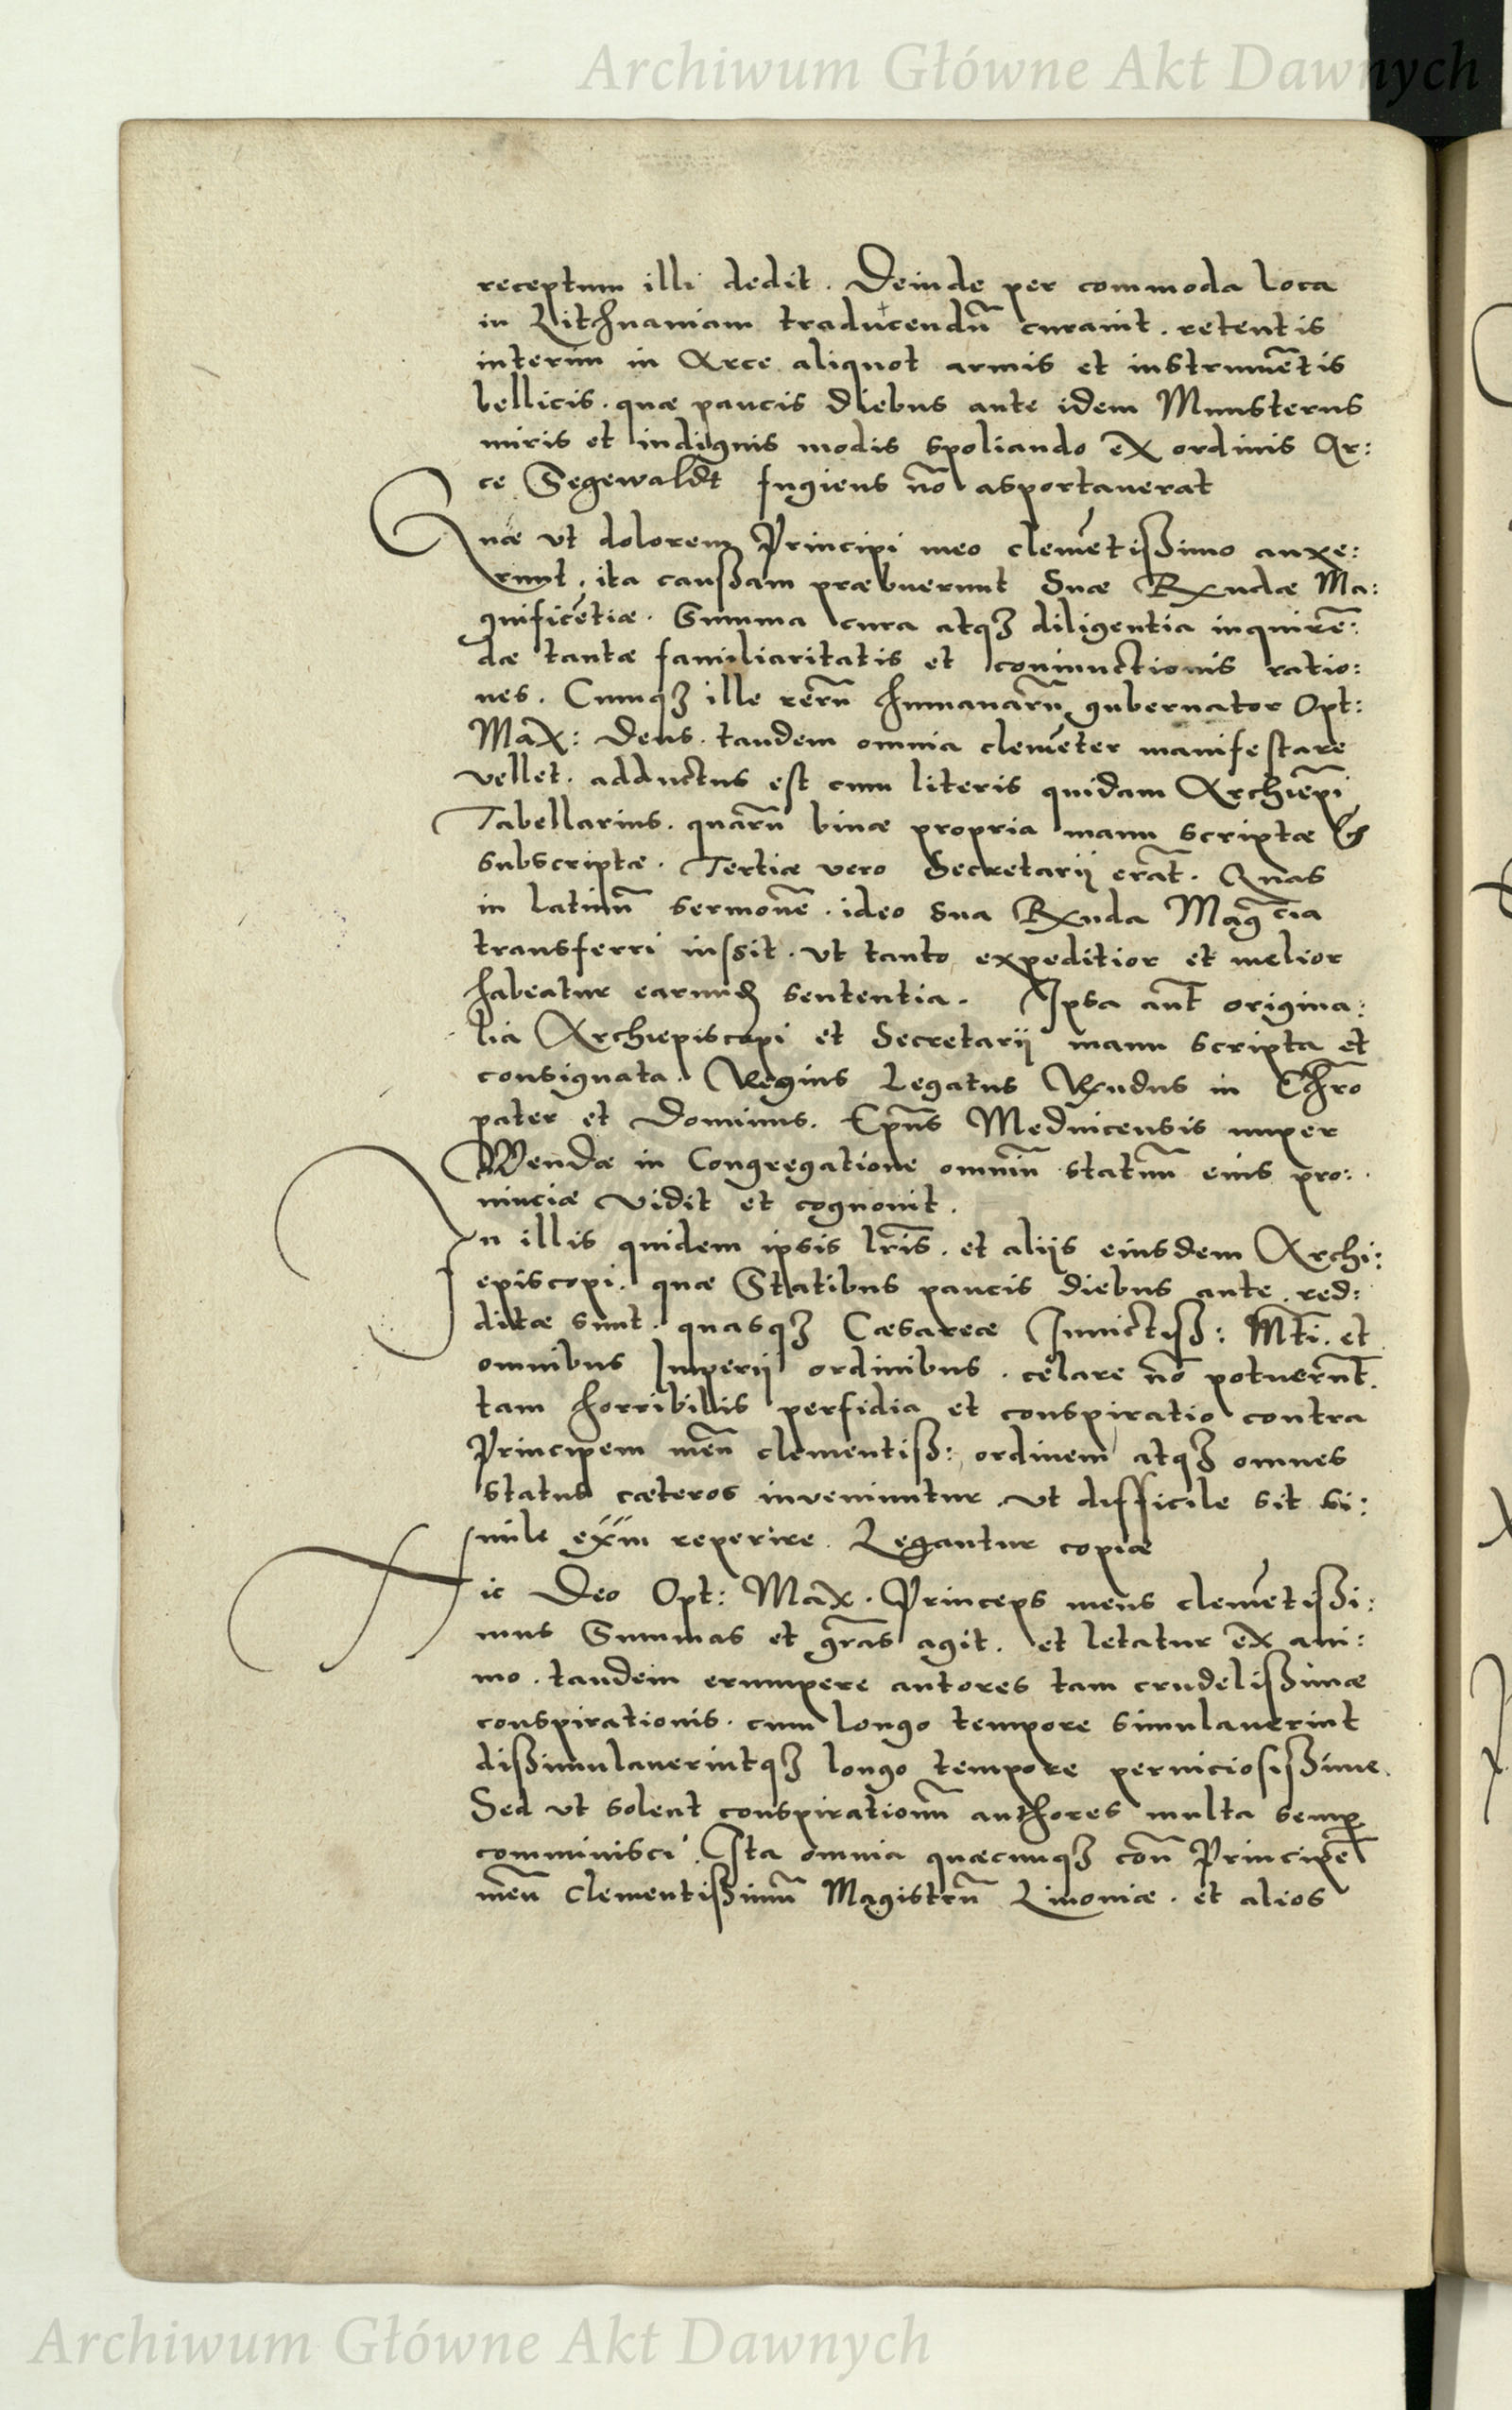 Archiwum Główne Akt Dawnych
receptum illi dedit. Deinde per commoda loca
in Lithuaniam traducendũ curauit. retentis
interim in Arce aliquot armis et instrumẽtis
bellicis. quæ paucis diebus ante idem Munsterus
miris et indignis modis spoliando ex ordinis Ar:
ce Segewaldt fugiens nõ asportauerat
Quæ ut dolorem Principi meo clemẽtißimo auxe:
runt, ita caußam præbuerunt Suæ Rxndæ Ma:
gnificẽtiæ. Summa cura atqȝ diligentia inquirẽ:
dæ tantæ familiaritatis et coniunctionis ratio:
nes. Cumqȝ ille rerũ humanarũ gubernator Opt:
Max: Deus. tandem omnia clemẽter manifestare
vellet. adductus est cum literis quidam Archiẽpi
Tabellarius. quarũ binæ propria manu scriptæ &
subscriptæ. Tertiæ vero Secretarij erãt. Quas
in latinũ sermonẽ. ideo sua Rxnda Magcia
transferri iussit. ut tanto expeditior et melior
habeatur earund sententia. Ipsa aũt origina:
lia Archiepiscopi et Secretarij manu scripta et
consignata. Regius Legatus Rxndus in Chro
pater et Dominus. Epũs Mednicensis nuper
Wendæ in Congregatione omniũ statuũ eius pro:
uinciæ vidit et cognouit.
In illis quidem ipsis lr̃is. et alijs eiusdem Archi:
episcopi. quæ Statibus paucis diebus ante. red:
ditæ sunt. quasqȝ Cæsareæ Inuictiß: Mti. et
omnibus Imperij ordinibus. celare nõ potuerũt.
tam horribilis perfidia et conspiratio contra
Principem meũ clementiß: ordinem atqȝ omnes
status cæteros inveniuntur. ut difficile sit si:
mile exm reperire. Legantur copiæ
Hic Deo Opt: Max. Princeps meus clemẽtißi:
mus Summas et grãs agit. et letatur ex ani:
mo. tandem erumpere autores tam crudelißimæ
conspirationis. cum longo tempore simulauerint
dißimulauerintqȝ longo tempore perniciosißime.
Sed ut solent conspirationũ authores multa semꝑ
comminisci. Ita omnia quæcunqȝ coñ Principẽ
meũ clementißimũ Magistrũ Liuoniæ. et alios
Archiwum Główne Akt Dawnych